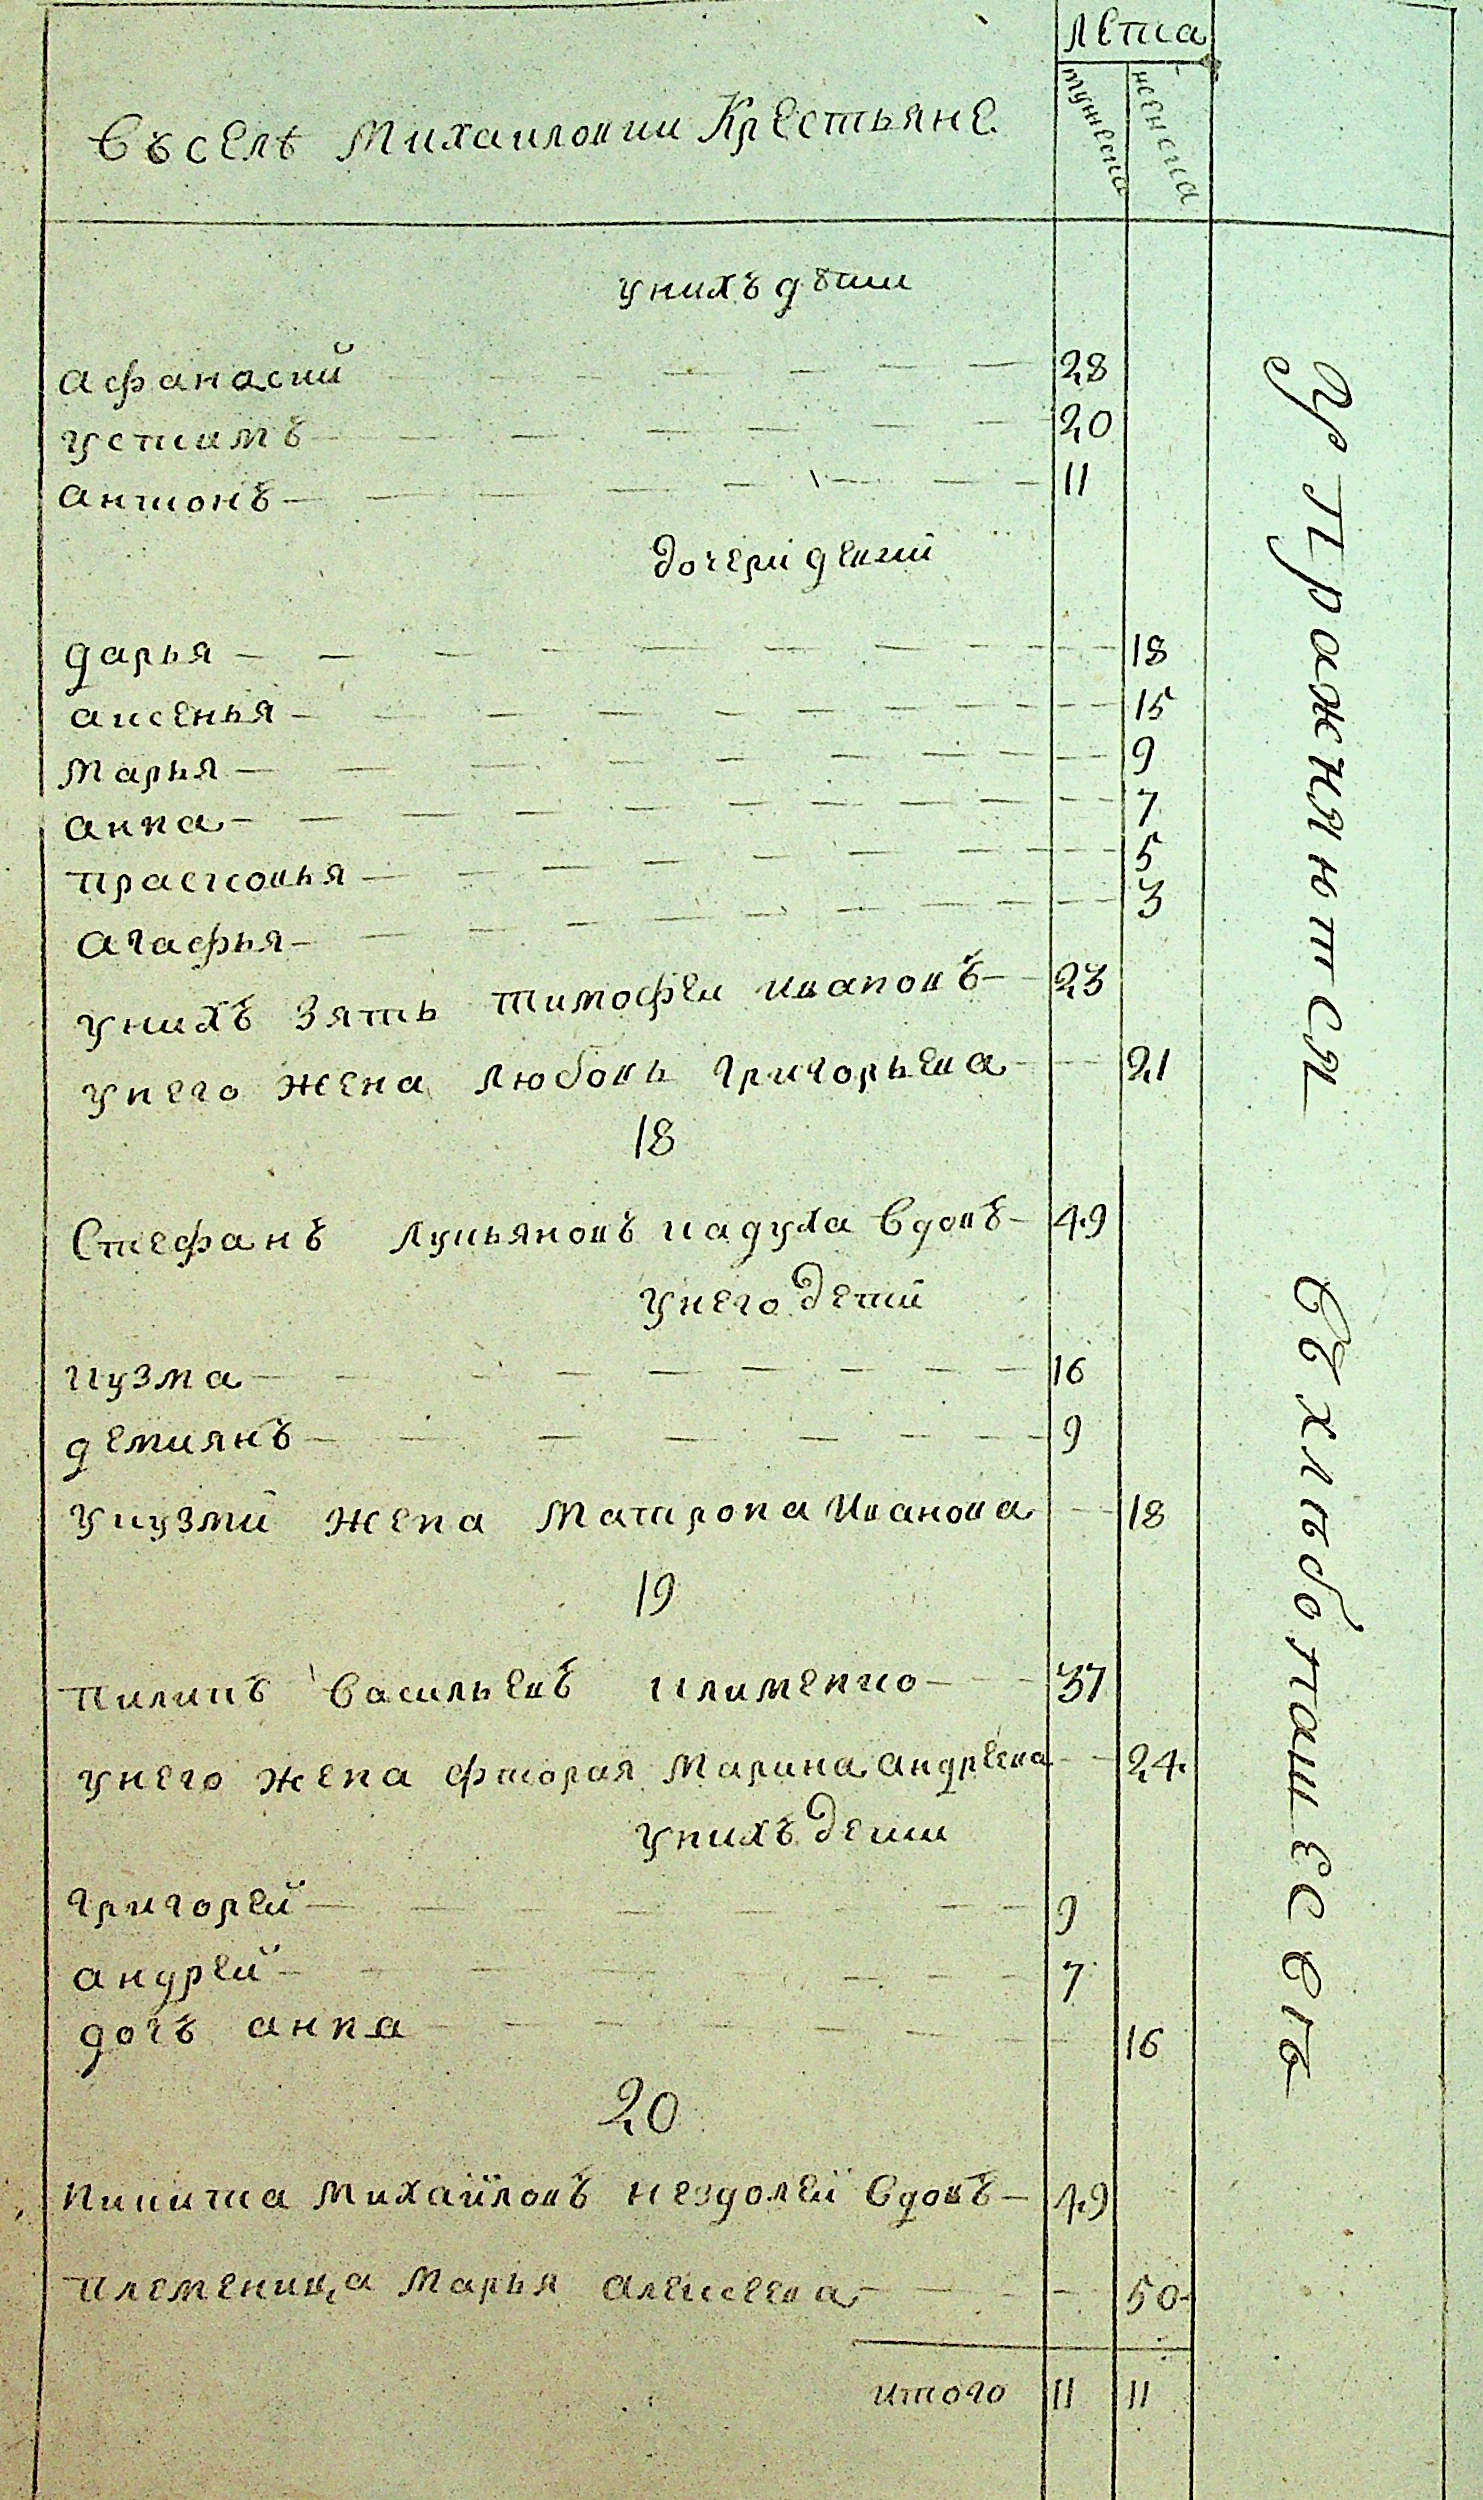 лета
мужеска
женска
Въ селѣ Михаиловки Крестьяне.
у нихъ дѣти
афанасий 28
устимъ 20
антонъ 11
дочери девки
дарья 18
аксенья 15
марья 9
анна 7
прасковья 5
агафья 3
у нихъ зять тимофеи ивановъ 23
у него жена любовь григорьева 21
18
Стефанъ лукьяновъ кадука вдовъ 49
у него дети
кузма 16
демиянъ 9
у кузми жена матрона иванова 18
19
пилипъ васильевъ клименко 37
у него жена фторая марина андреева 24
у нихъ дети
григорей 9
андрей 7
дочъ анна 16
20
никита михайловъ нездолей вдовъ 49
племеница марья алексеева 50
итого 11 11
Упражняются въ хлебопашесвѣ